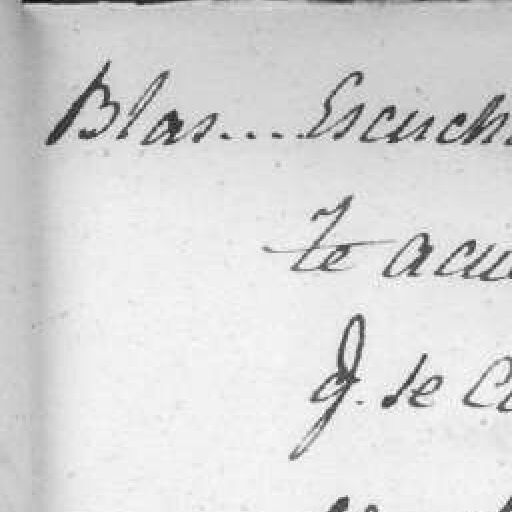 Blas.... Escuch
te acu
q. se c